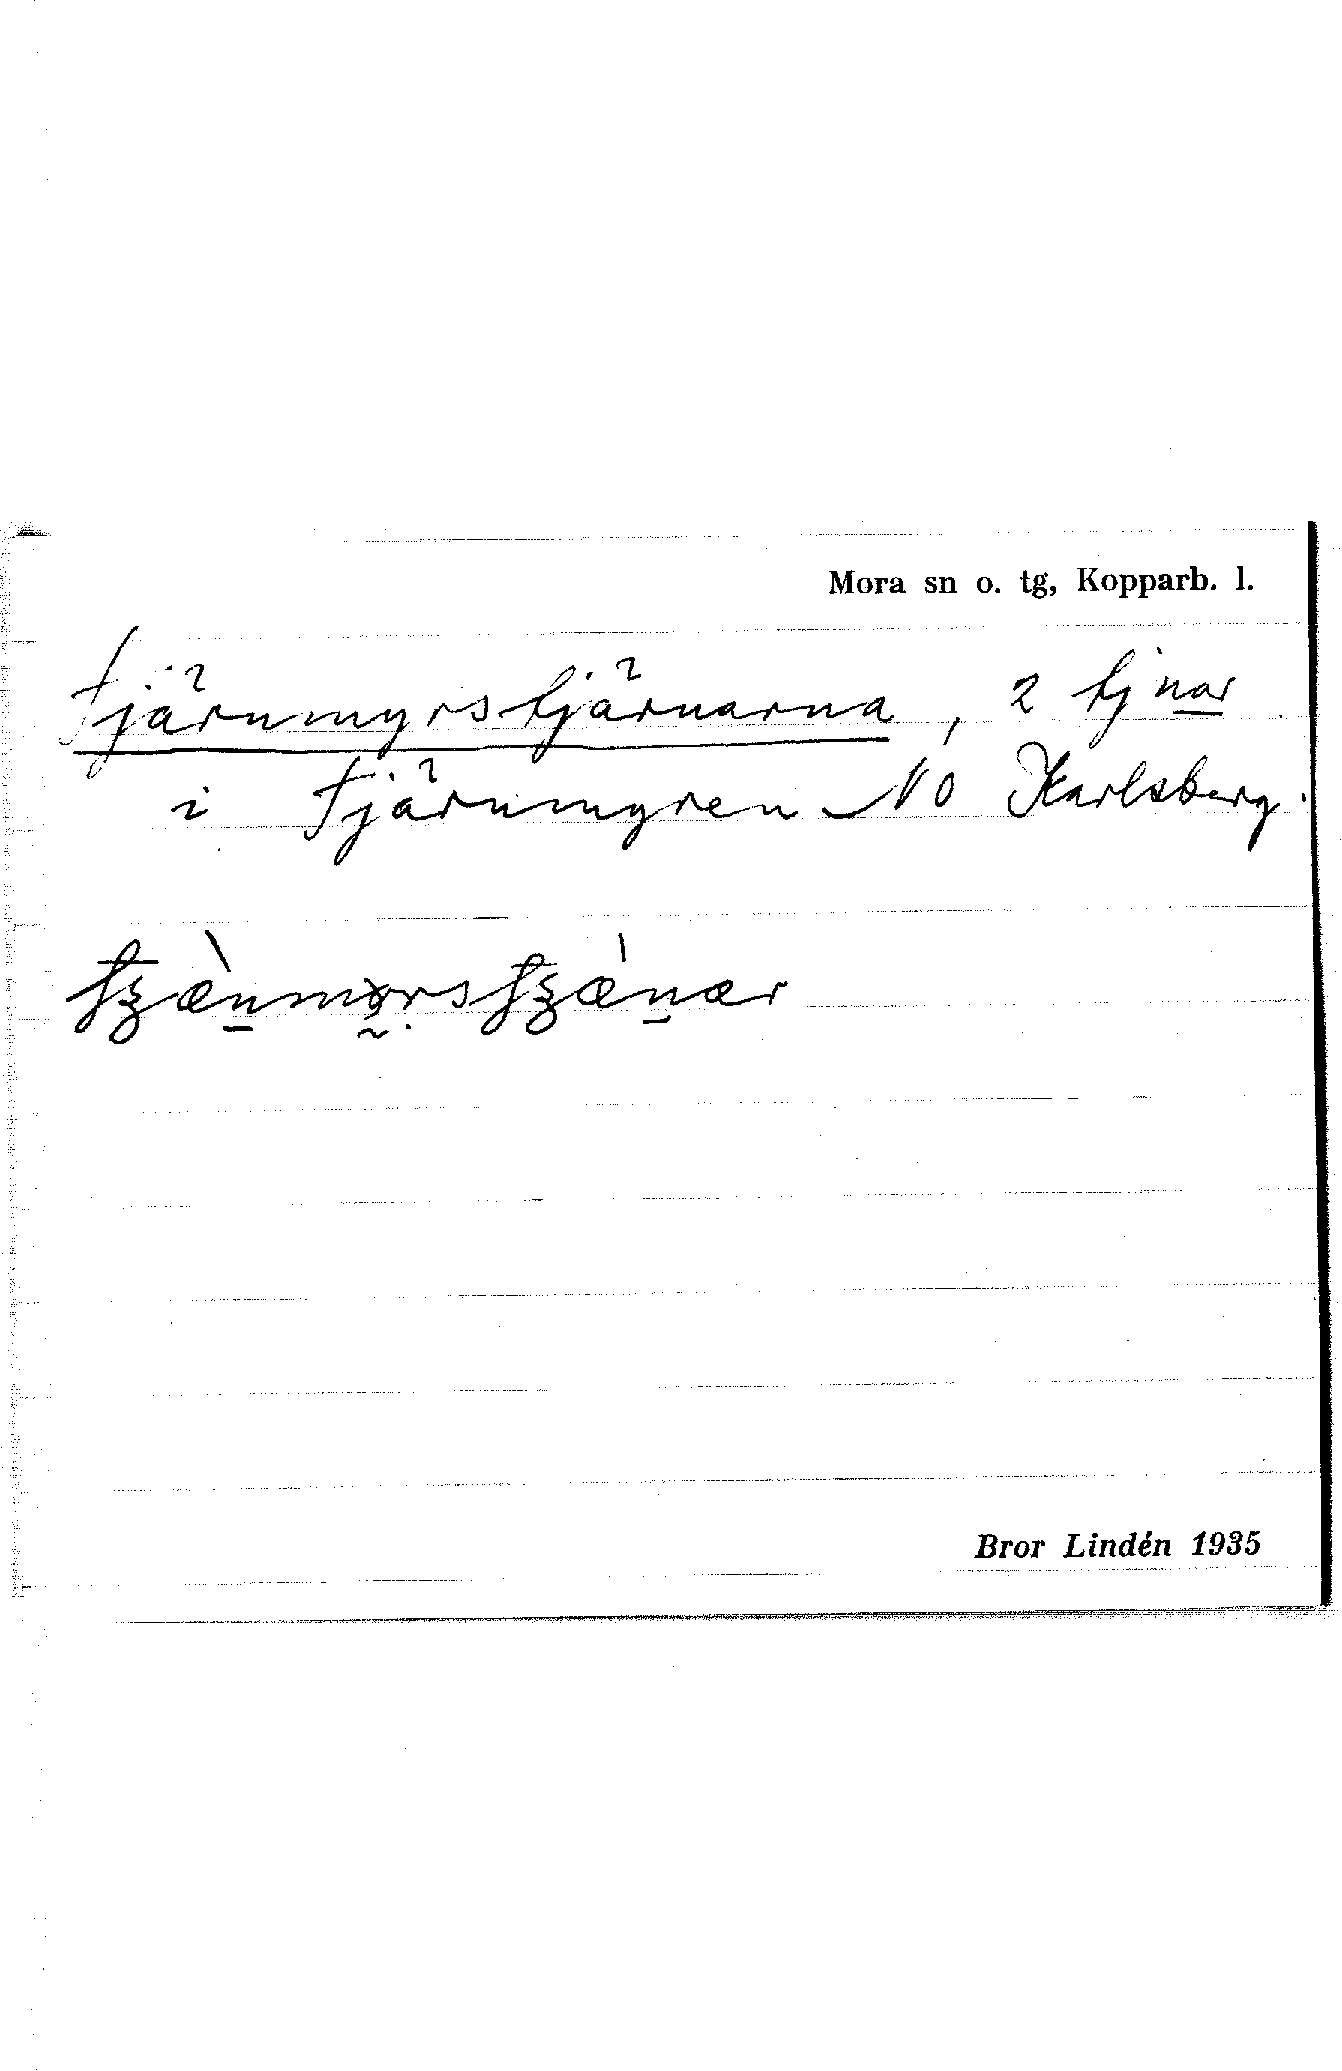 Mora sn o. tg, Kopparb. l.
Tjärnmyrstjärnarna, 2 tjnar
i Tjärnmyren NO Karlsberg.
Bror Lindén 1935